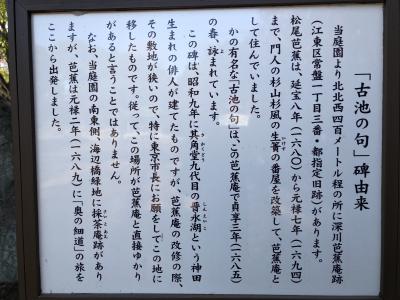 「古池の句」碑由来
当庭園より北北西四百メートル程の所に深川芭蕉庵跡
(江東区常盤一丁目三番・都指定旧跡)があります。
松尾芭蕉は、延宝八年(一六八〇)から元禄七年(一六九四)
まで、門人の杉山杉風の生簀の番屋を改築して、芭蕉庵と
して住んでいました。
いけす
かの有名な「古池の句」は、この芭蕉庵で貞享三年(一六八五)
の春、詠まれています。
この碑は、昭和九年に其角堂九代目の晋水湖という神田
きかくどう
しんすいこ
生まれの俳人が建てたものですが、芭蕉庵の改修の際、
その敷地が狭いので、特に東京市長にお願をしてこの地に
移したものです。従って、この場所が芭蕉庵と直接ゆかり
があると言うことではありません。
なお、当庭園の南東側、海辺橋緑地に採荼庵跡があり
さいとあん
ますが、芭蕉は元禄二年(一六八九)に「奥の細道」の旅を
ここから出発しました。